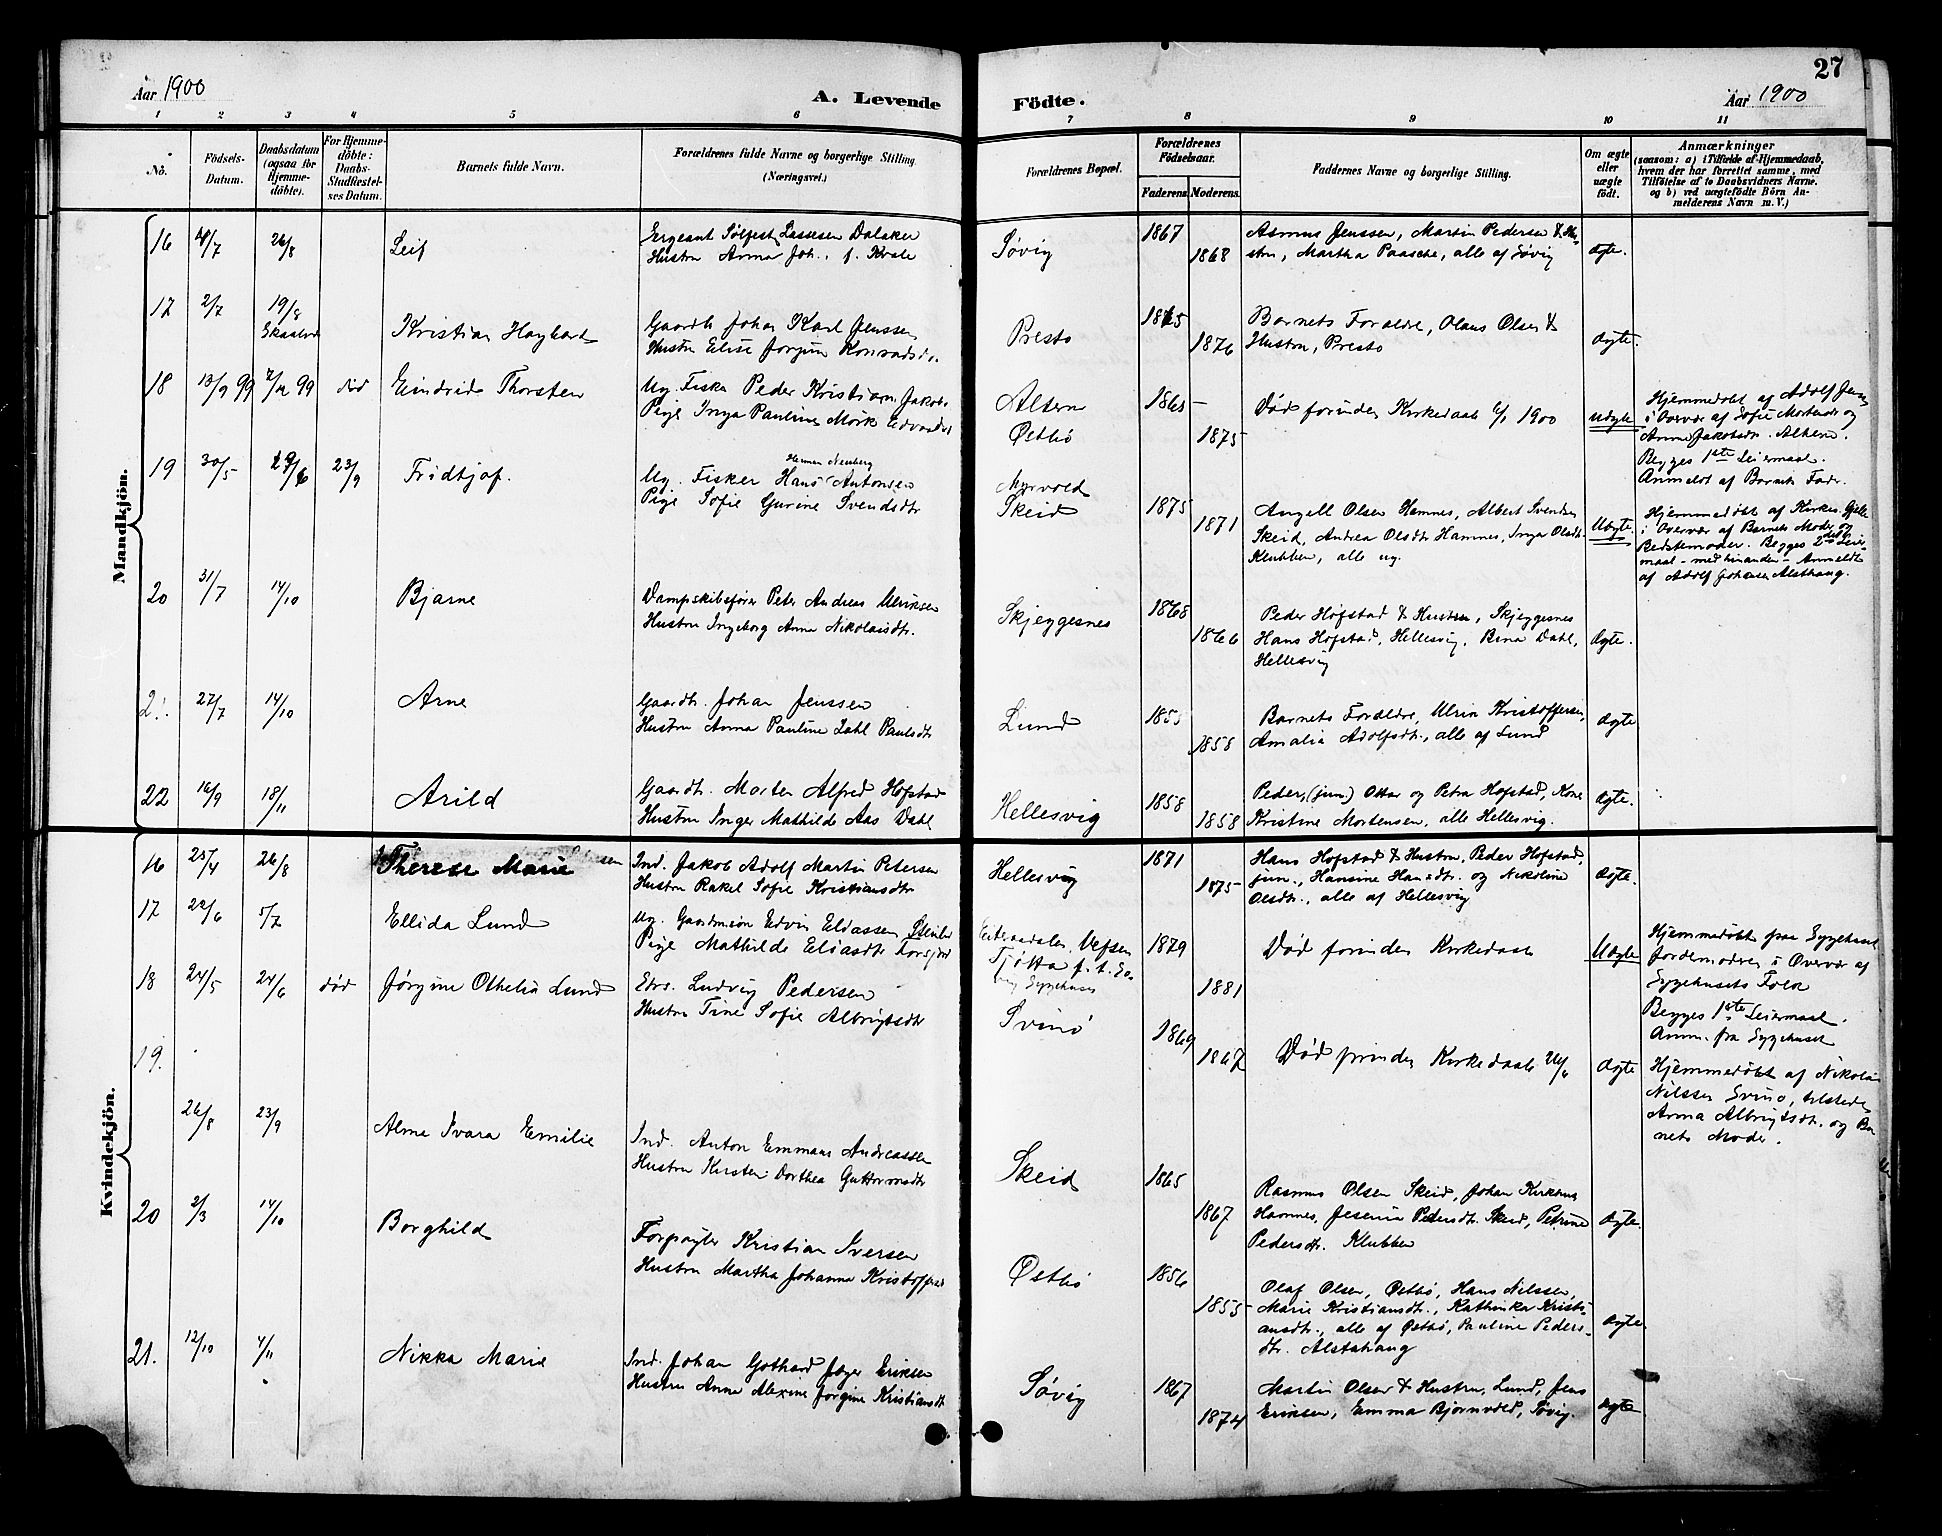 Aar 1900
A. Levende Födte.
Aar 1900
27
1 2 3 4 5 6 7 8 9 10 11
No.
Födsels-Datum.
Daabsdatum (ogsaa for Hjemme-döbte).
For Hjemme-döbte: Daabs-Stadfæstel-ses Datum.
Barnets fulde Navn.
Forældrenes fulde Navne og borgerlige Stilling.
(Næringsvei.)
Forældrenes Bopæl.
Forældrenes Födselsaar.
Faderens. Moderens.
Faddernes Navne og borgerlige Stilling.
Om ægte eller uægte födt.
Anmærkninger
(saasom: a) i Tilfælde af Hjemmedaab,
hvem der har forrettet samme, med
Tilföielse af to Daabsvidners Navne,
og b) ved uægtefödte Börn An-
melderens Navn m. V.)
Mandkjön.
16 26/8 Leif
Sergeant Sølfest Lassesen Dalaker
Hustru Anna Joh. f. Kvale
Søvig 1867 1868
Asmus Jenssen, Martin Pedersen & Hu-
stru, Martha Paasche, alle af Søvig
Ægte.
17 2/7 19/8 Kristian Hagbart
Gaardb. Johan Karl Jenssen
Hustru Elise Jørgine Konradsd.
Presto 1865 1876
Barnets Forældre, Olaus Olsen &
Hustru, Presto
Ægte.
18 13/9 99 99 død Eindride Thorsten
Ug. Fisker Peder Kristian Jakobs.
Pige Inga Pauline Mørk Edvardsd.
Altern
Østbø
1865 1875
Død forinden Kirkedaab 1900
Uægte
Hjemmedøbt af Adolf Jens.
i Overvær af Sofie Mortensdr og
Anna Jakobsdr. Altern.
Begges 1ste Leiermaal.
Anmeldt af Barnets Fader.
19 30/5 23/9 Fridtjof.
Ug. Fisker Hans Antonsen
Pige Sofie Gurine Svendsdtr
Myrvold
Skeid
1875 1871
Angell Olsen Hamnes, Albert Svendsen
Skeid, Andrea Olsdtr Hamnes, Inga Olsdt.
Klubben, alle ug.
Uægte.
Hjemmedøbt af Kirkes.
i Overvær af Barnets Moder og
Bedstemoder. Begges 2det Leier-
maal - med hinanden - Anmeldt
af Adolf Johansen Alsthaug.
20 31/7 14/10 Bjarne
Dampskibsfører Peter Andreas Ulriksen
Hustru Ingeborg Anna Nikolaisdtr.
Skjeggesnes 1868 1866
Peder Hofstad & Hustru, Skjeggesnes
Hans Hofstad, Hellesvig, Bina Dahl,
Hellesvig
Ægte.
21. 27/7 14/10 Arne
Gaardb. Johan Jenssen
Hustru Anna Pauline Dahl Paulsdtr
Lund 1858
Barnets Forældre, Ulrin Kristoffersen,
Amalia Adolfsdtr., alle af Lund
Ægte
22 16/9 18/11 Arild
Gaardb. Morten Alfred Hofstad
Hustru Inger Mathilde Aas Dahl
Hellesvig 1858 1858
Peder, (jun.) Ottar og Petra Hofstad, Kone
Kristine Mortensen, alle Hellesvig.
Ægte.
Kvindekjön.
16 25/4 26/8 Therese Marie
Ind. Jakob Adolf Martin Petersen
Hustru Rakel Sofie Kristiansdtr
Hellesvig 1871 1875
Hans Hofstad & Hustru, Peder Hofstad,
jun., Hansine Hansdtr. og Nikoline
Olsdtr., alle af Hellesvig
Ægte.
17 22/6 5/7 Ellida Lund
Ug. Gaardmand Edvin Eliassen
Pige Mathilde Eliasdtr Forsjord
Eiteraadalen Vefsen
Tjøtta p. t.
Sygehuset
1879 1881
Død forinden Kirkedaab
Uægte
Hjemmedøbt paa Sygehuset
Jordemoderen i Overvær af
Sygehusets Folk
Begges 1ste Leiermaal.
Anm. fra Sygehuset
18 24/5 24/6 død Jørgine Othelia Lund
Ludvig Pedersen
Hustru Tine Sofie Albrigtsdtr
Svinø 1869 1867
Død forinden Kirkedaab 26/6
Ægte
Hjemmedøbt af Nikolai
Nilssen Svinø, tilstede
Anna Albrigtsdtr. og Bar
nets Moder.
19. 26/8 23/9 Alma Svara Emilie
Ind. Anton Emmaus Andreassen
Hustru Kirsten Dorthea Guttormsdtr
Skeid 1865 1867
Rasmus Olsen Skeid, Johan
Hamnes, Jesenia Pedersdtr. Skeid, Petrine
Pedersdtr. Klubben
Ægte.
20 2/3 14/10 Borghild
Forpagter Kristian Iversen
Hustru Martha Johanna Kristoffersd
Østbø 1856 1855
Olaf Olsen, Østbø, Hans Nilssen,
Marie Kristiansdtr., Kathinka Kristi-
ansdtr., alle af Østbø, Pauline Peders-
dtr. Alstahaug
Ægte.
21. 12/10 4/11 Nikka Marie
Ind. Johan Gothard Jæger Eriksen
Hustru Anne Alexine Jørgine Kristiansdt
Søvig 1867 1874
Martin Olsen & Hustru, Lund, Jens
Eriksen, Emma Bjørnvold, Søvig.
Ægte